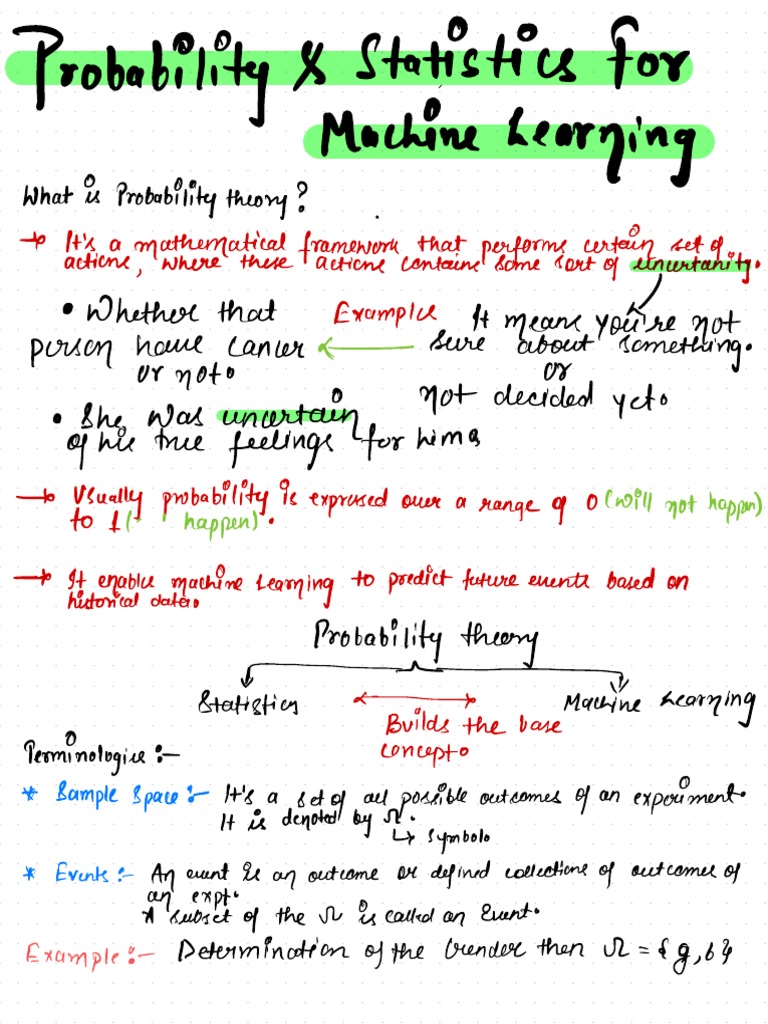 Probability & Statistics for
Machine Learning
What is Probability theory?
→ It's a mathematical framework that performs certain set of
actions, where these actions contains some sort of uncurtanity.
• Whether that
person have cancer
or not.
Example
It means you're not
sure about something.
or
not decided yet.
• She was uncertain
of his true feelings for him.
→ Usually probability is expressed over a range of 0 (will not happen)
to 1 (- happen).
→ It enable machine learning to predict future events based on
historical data.
Probability theory
Statistics
Machine Learning
Builds the base
concept.
Terminologies :-
* Sample Space :- It's a set of all possible outcomes of an experiment.
It is denoted by Ω.
↳ symbol.
* Events :- An event is an outcome or defined collections of outcomes of
an expt.
A subset of the Ω is called an Event.
Example :- Determination of the Gender then Ω = {g, b}